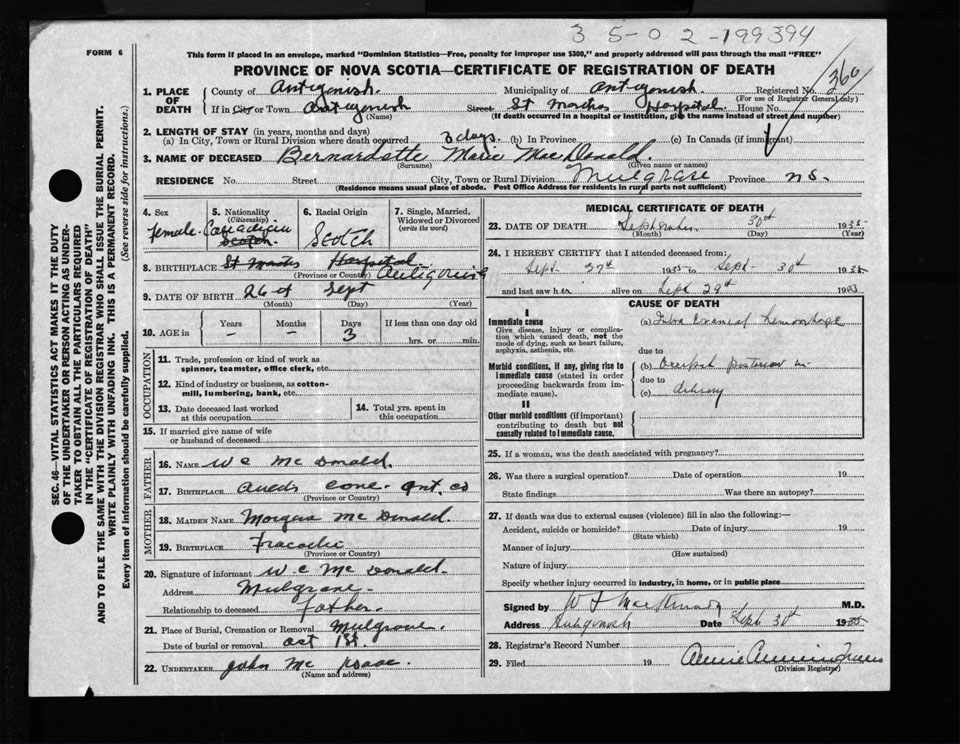 3 5-0 2-199394
FORM 6
This form if placed in an envelope, marked "Dominion Statistics—Free, penalty for improper use $300," and properly addressed will pass through the mail "FREE"
PROVINCE OF NOVA SCOTIA—CERTIFICATE OF REGISTRATION OF DEATH
360
1. PLACE OF DEATH
County of Antigonish Municipality of Antigonish Registered No.
(For use of Registrar General only)
If in City or Town Antigonish Street St Marthas Hospital House No.
(Name) (If death occurred in a hospital or institution, give the name instead of street and number)
2. LENGTH OF STAY (in years, months and days)
(a) In City, Town or Rural Division where death occurred 3 days. (b) In Province (c) In Canada (if immigrant)
3. NAME OF DECEASED Bernardette Marie MacDonald.
(Surname) (Given name or names)
RESIDENCE No. Street City, Town or Rural Division Mulgrave Province N.S.
(Residence means usual place of abode. Post Office Address for residents in rural parts not sufficient)
4. Sex
female
5. Nationality
(Citizenship)
Canadian
Scotch
6. Racial Origin
Scotch
7. Single, Married, Widowed or Divorced
(write the word)
8. BIRTHPLACE St Marthas Hospital Antigonish
(Province or County)
9. DATE OF BIRTH 26 of Sept
(Month) (Day) (Year)
10. AGE in
Years –
Months –
Days 3
If less than one day old
hrs. or min.
OCCUPATION
11. Trade, profession or kind of work as spinner, teamster, office clerk, etc.
12. Kind of industry or business, as cotton-mill, lumbering, bank, etc.
13. Date deceased last worked at this occupation
14. Total yrs. spent in this occupation
15. If married give name of wife or husband of deceased
FATHER
16. NAME W C McDonald.
17. BIRTHPLACE Cove Ant. Co
(Province or Country)
MOTHER
18. MAIDEN NAME McDonald.
19. BIRTHPLACE Tracadie
(Province or Country)
20. Signature of informant W. C McDonald.
Address Mulgrave
Relationship to deceased Father.
21. Place of Burial, Cremation or Removal Mulgrave.
Date of burial or removal Oct 1st.
22. UNDERTAKER John McIsaac.
(Name and address)
MEDICAL CERTIFICATE OF DEATH
23. DATE OF DEATH September 30th 1935
(Month) (Day) (Year)
24. I HEREBY CERTIFY that I attended deceased from:
Sept. 27th 1935 to Sept. 30th 1935
and last saw her alive on Sept 29th 1935
CAUSE OF DEATH
I
Immediate cause
Give disease, injury or complication which caused death, not the mode of dying, such as heart failure, asphyxia, asthenia, etc.
(a) Intra Cranial Hemorrhage
due to
Morbid conditions, if any, giving rise to immediate cause (stated in order proceeding backwards from immediate cause).
(b) Occiput Posterior in
due to
(c) delivery
II
Other morbid conditions (if important) contributing to death but not causally related to immediate cause.
25. If a woman, was the death associated with pregnancy?
26. Was there a surgical operation? Date of operation 19
State findings Was there an autopsy?
27. If death was due to external causes (violence) fill in also the following:—
Accident, suicide or homicide? Date of injury 19
(State which)
Manner of injury
(How sustained)
Nature of injury
Specify whether injury occurred in industry, in home, or in public place
Signed by M.D.
Address Antigonish Date Sept 30th 1935
28. Registrar's Record Number
29. Filed 19 Annie Cunningham
(Division Registrar)
SEC. 46—VITAL STATISTICS ACT MAKES IT THE DUTY
OF THE UNDERTAKER OR PERSON ACTING AS UNDERTAKER TO OBTAIN ALL THE PARTICULARS REQUIRED
IN THE "CERTIFICATE OF REGISTRATION OF DEATH"
AND TO FILE THE SAME WITH THE DIVISION REGISTRAR WHO SHALL ISSUE THE BURIAL PERMIT.
WRITE PLAINLY WITH UNFADING INK. THIS IS A PERMANENT RECORD.
Every item of information should be carefully supplied. (See reverse side for instructions.)